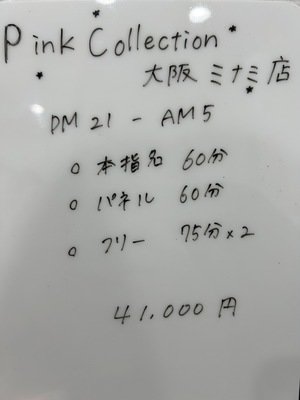 Pink Collection
大阪ミナミ店
PM 21 - AM 5
○ 本指名 60分
○ パネル 60分
○ フリー 75分×2
41,000円